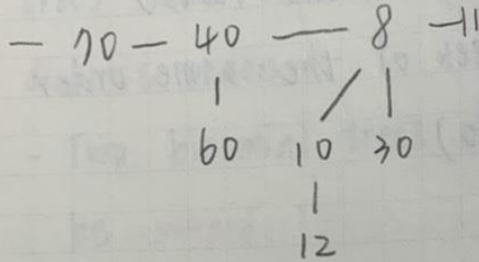 — 70 — 40 — 8 —11
60 10 30
12